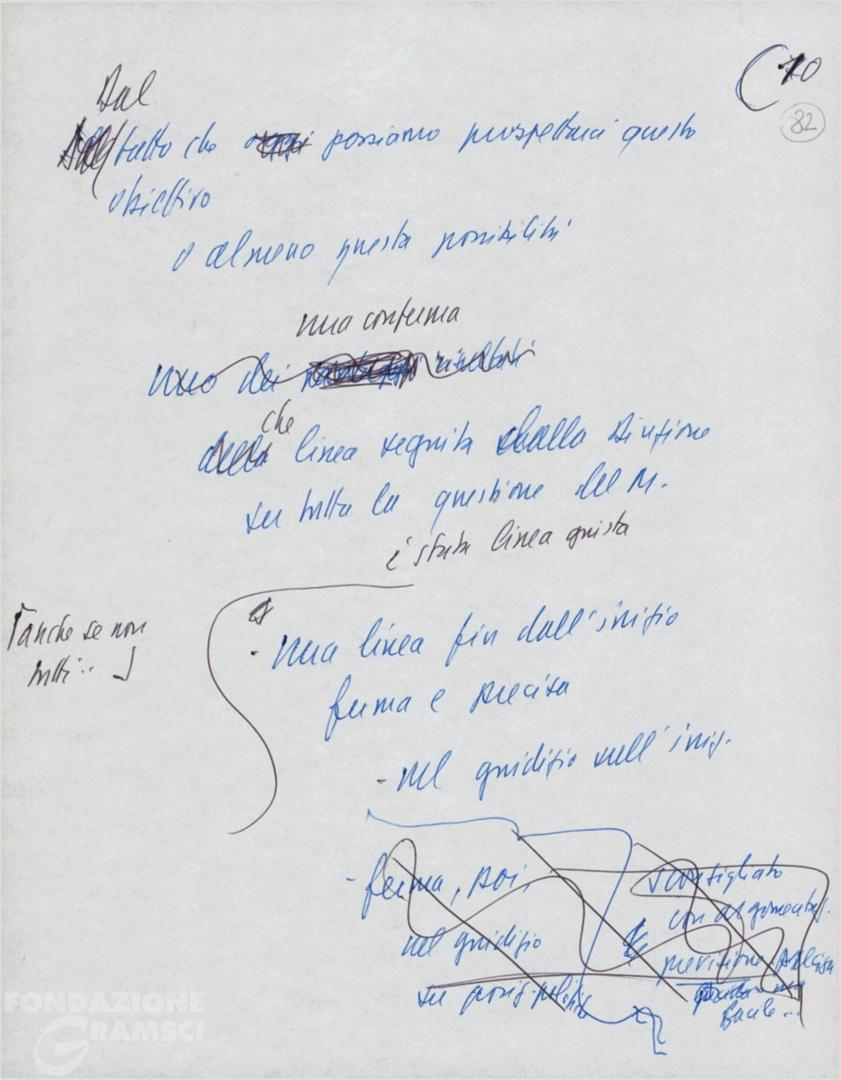 (10
82
Dal
fatto che oggi possiamo prospettarci questo
obiettivo
o almeno questa possibilità
una conferma
uno dei risultati
che
della linea seguita dalla Direzione
su tutta la questione del M.
è stata linea giusta
[anche se non
tutti..]
- una linea fin dall'inizio
ferma e precisa
- nel giudizio sull'iniz.
- ferma, poi,
nel giudizio
su posiz. politic
sconsigliato
con argomentaz.
e previsione precisa
facile...
FONDAZIONE
GRAMSCI